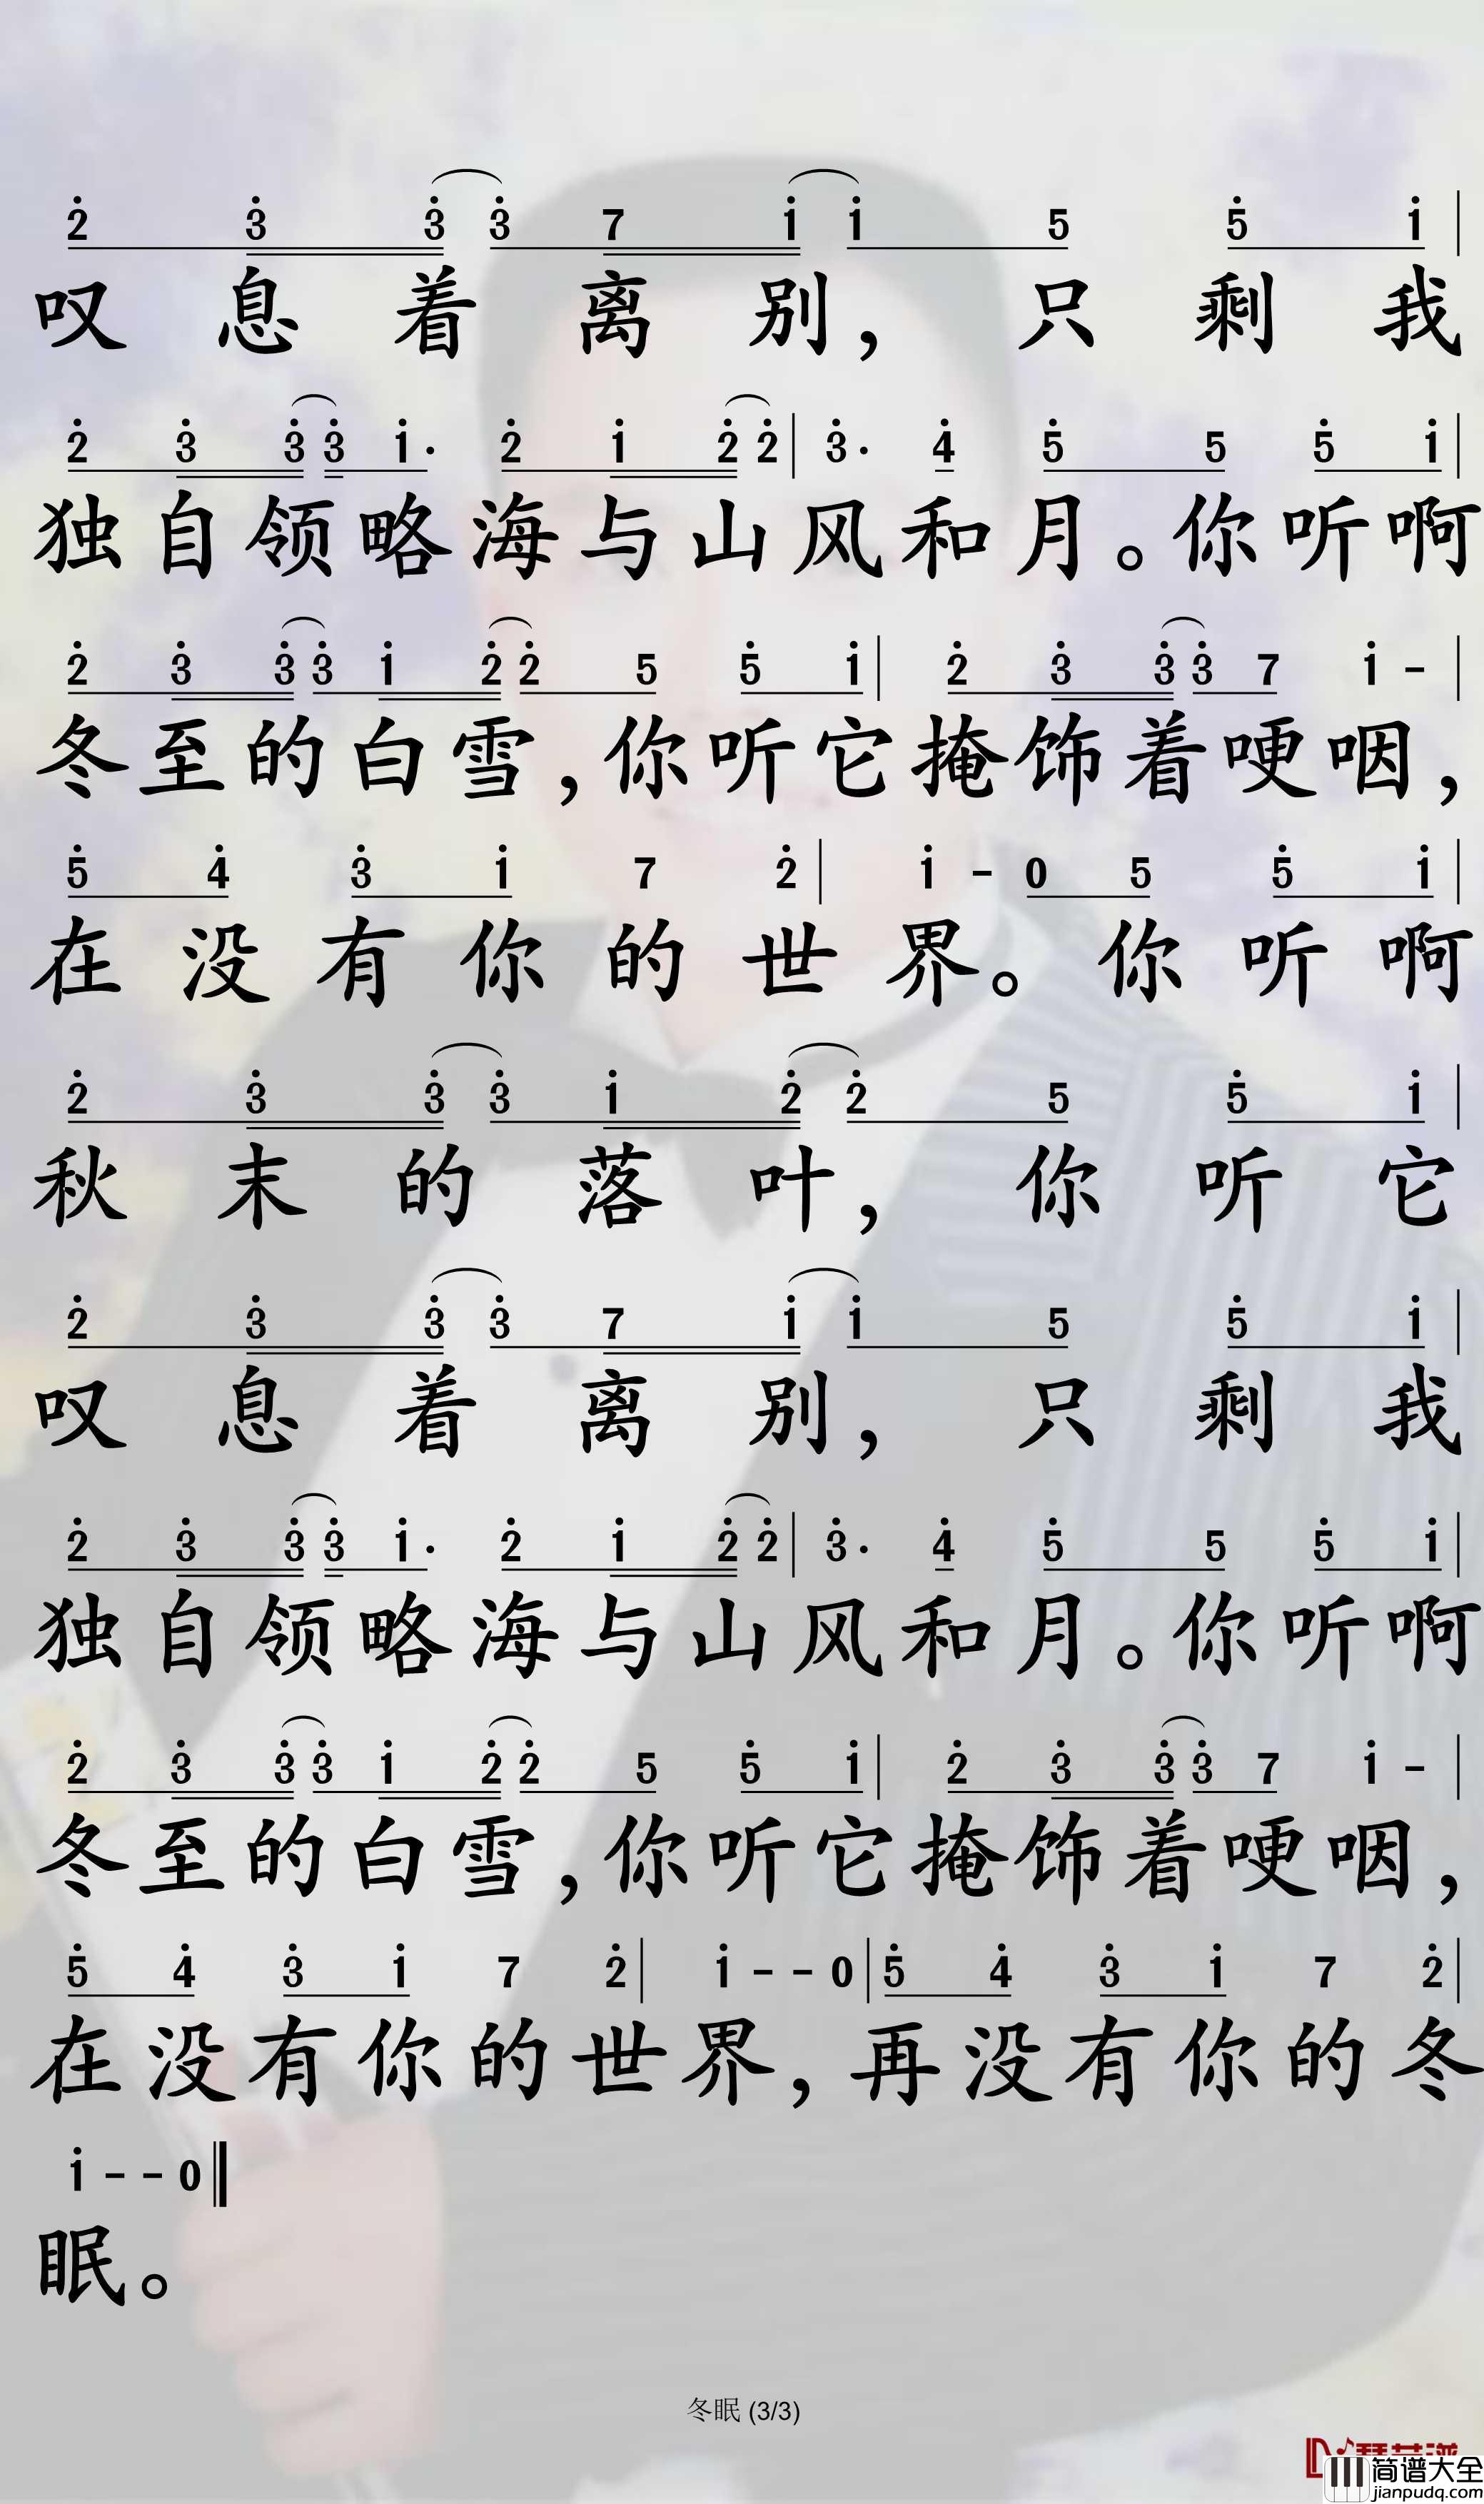 2̇ 3̇ 3̇ 3̇ 7 1̇ 1̇ 5 5̇ 1̇ |
叹息着离别，只剩我
2̇ 3̇ 3̇ 3̇ 1̇· 2̇ 1̇ 2̇ 2̇ | 3̇· 4̇ 5̇ 5 5̇ 1̇ |
独自领略海与山风和月。你听啊
2̇ 3̇ 3̇ 3̇ 1̇ 2̇ 2̇ 5 5̇ 1̇ | 2̇ 3̇ 3̇ 3̇ 7 1̇ - |
冬至的白雪，你听它掩饰着哽咽，
5̇ 4̇ 3̇ 1̇ 7 2̇ | 1̇ - 0 5 5̇ 1̇ |
在没有你的世界。你听啊
2̇ 3̇ 3̇ 3̇ 1̇ 2̇ 2̇ 5 5̇ 1̇ |
秋末的落叶，你听它
2̇ 3̇ 3̇ 3̇ 7 1̇ 1̇ 5 5̇ 1̇ |
叹息着离别，只剩我
2̇ 3̇ 3̇ 3̇ 1̇· 2̇ 1̇ 2̇ 2̇ | 3̇· 4̇ 5̇ 5 5̇ 1̇ |
独自领略海与山风和月。你听啊
2̇ 3̇ 3̇ 3̇ 1̇ 2̇ 2̇ 5 5̇ 1̇ | 2̇ 3̇ 3̇ 3̇ 7 1̇ - |
冬至的白雪，你听它掩饰着哽咽，
5̇ 4̇ 3̇ 1̇ 7 2̇ | 1̇ - - 0 | 5̇ 4̇ 3̇ 1̇ 7 2̇ |
在没有你的世界，再没有你的冬
1̇ - - 0 ‖
眠。
冬眠 (3/3)
简谱大全
jianpudq.com